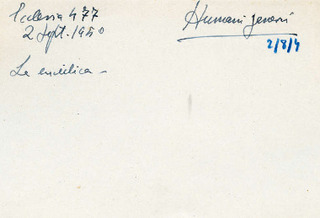 Ecclesia 477
2 Sept. 1950
Humani generis
2/8/4
La encíclica –